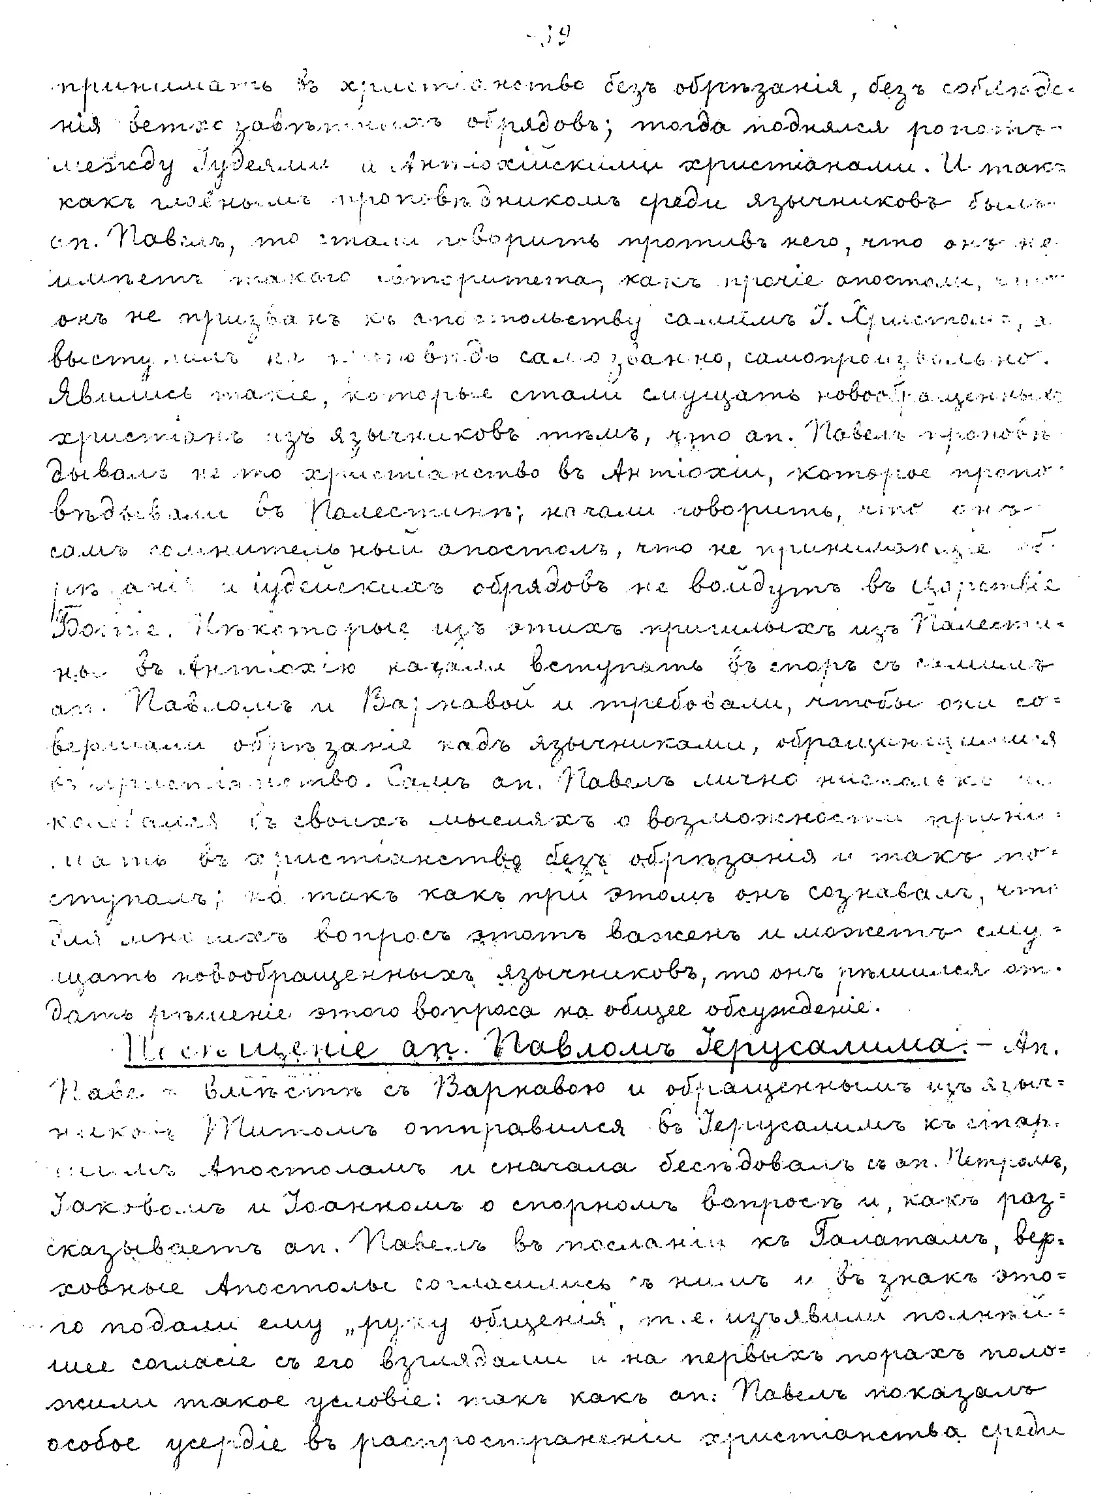 -39
принимать въ христіанство безъ обрѣзанія, безъ соблюде-
нія ветхозавѣтныхъ обрядовъ; тогда поднялся ропотъ
между Іудеями и Антіохійскими христіанами. И такъ
какъ главнымъ проповѣдникомъ среди язычниковъ былъ
ап. Павелъ, то стали говорить противъ него, что онъ не
имѣетъ такого авторитета, какъ прочіе апостолы, что
онъ не призванъ къ апостольству самимъ І. Христомъ, а
выступилъ на проповѣдь самозванно, самопроизвольно.
Явились такіе, которые стали смущать новообращенныхъ
христіанъ изъ язычниковъ тѣмъ, что ап. Павелъ проповѣ-
дывалъ не то христіанство въ Антіохіи, которое пропо-
вѣдывали въ Палестинѣ; начали говорить, что онъ
самъ сомнительный апостолъ, что не принимающіе об-
рѣзанія и іудейскихъ обрядовъ не войдутъ въ Царствіе
Божіе. Нѣкоторые изъ этихъ пришлыхъ изъ Палести-
ны въ Антіохію начали вступать въ споръ съ самимъ
ап. Павломъ и Варнавой и требовали, чтобы они со=
вершали обрѣзаніе надъ язычниками, обращающимися
въ христіанство. Самъ ап. Павелъ лично нисколько не
колебался въ своихъ мысляхъ о возможности прини-
мать въ христіанство безъ обрѣзанія и такъ по=
ступалъ; но такъ какъ при этомъ онъ сознавалъ, что
для многихъ вопросъ этотъ важенъ и можетъ сму=
щать новообращенныхъ язычниковъ, то онъ рѣшился от-
дать рѣшеніе этого вопроса на общее обсужденіе.
Посѣщеніе ап. Павломъ Іерусалима. – Ап.
Павелъ вмѣстѣ съ Варнавою и обращеннымъ изъ языч=
никовъ Титомъ отправился въ Іерусалимъ къ стар-
шимъ Апостоламъ и сначала бесѣдовалъ съ ап. Петромъ,
Іаковомъ и Іоанномъ о спорномъ вопросѣ и, какъ раз=
сказываетъ ап. Павелъ въ посланіи къ Галатамъ, вер=
ховные Апостолы согласились съ нимъ и въ знакъ это=
го подали ему „руку общенія", т.е. изъявили полнѣй=
шее согласіе съ его взглядами и на первыхъ порахъ поло=
жили такое условіе: такъ какъ ап. Павелъ показалъ
особое усердіе въ распространеніи христіанства среди